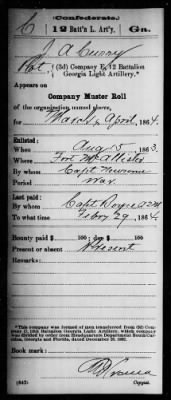 Confederate.
C 12 Batt'n L. Art'y. Ga.
J. A. Curry
Pvt (2d) Company E, 12 Battalion
Georgia Light Artillery.*
Appears on
Company Muster Roll
of the organization named above,
for March & April, 1864.
Enlisted:
When Aug 15, 1863
Where Fort McAllister
By whom Capt Newsome
Period War
Last paid:
By whom Capt. Boyce AQM
To what time Feby 29, 1864.
Bounty paid $100 ; due $100
Present or absent Present
Remarks:
*This company was formed of men transferred from
Company
Battalion Georgia Light Artillery, which company
was divided by order from Headquarters Department South Caro-
lina, Georgia and Florida, dated December 1862.
Book mark:
(642) Copyist.